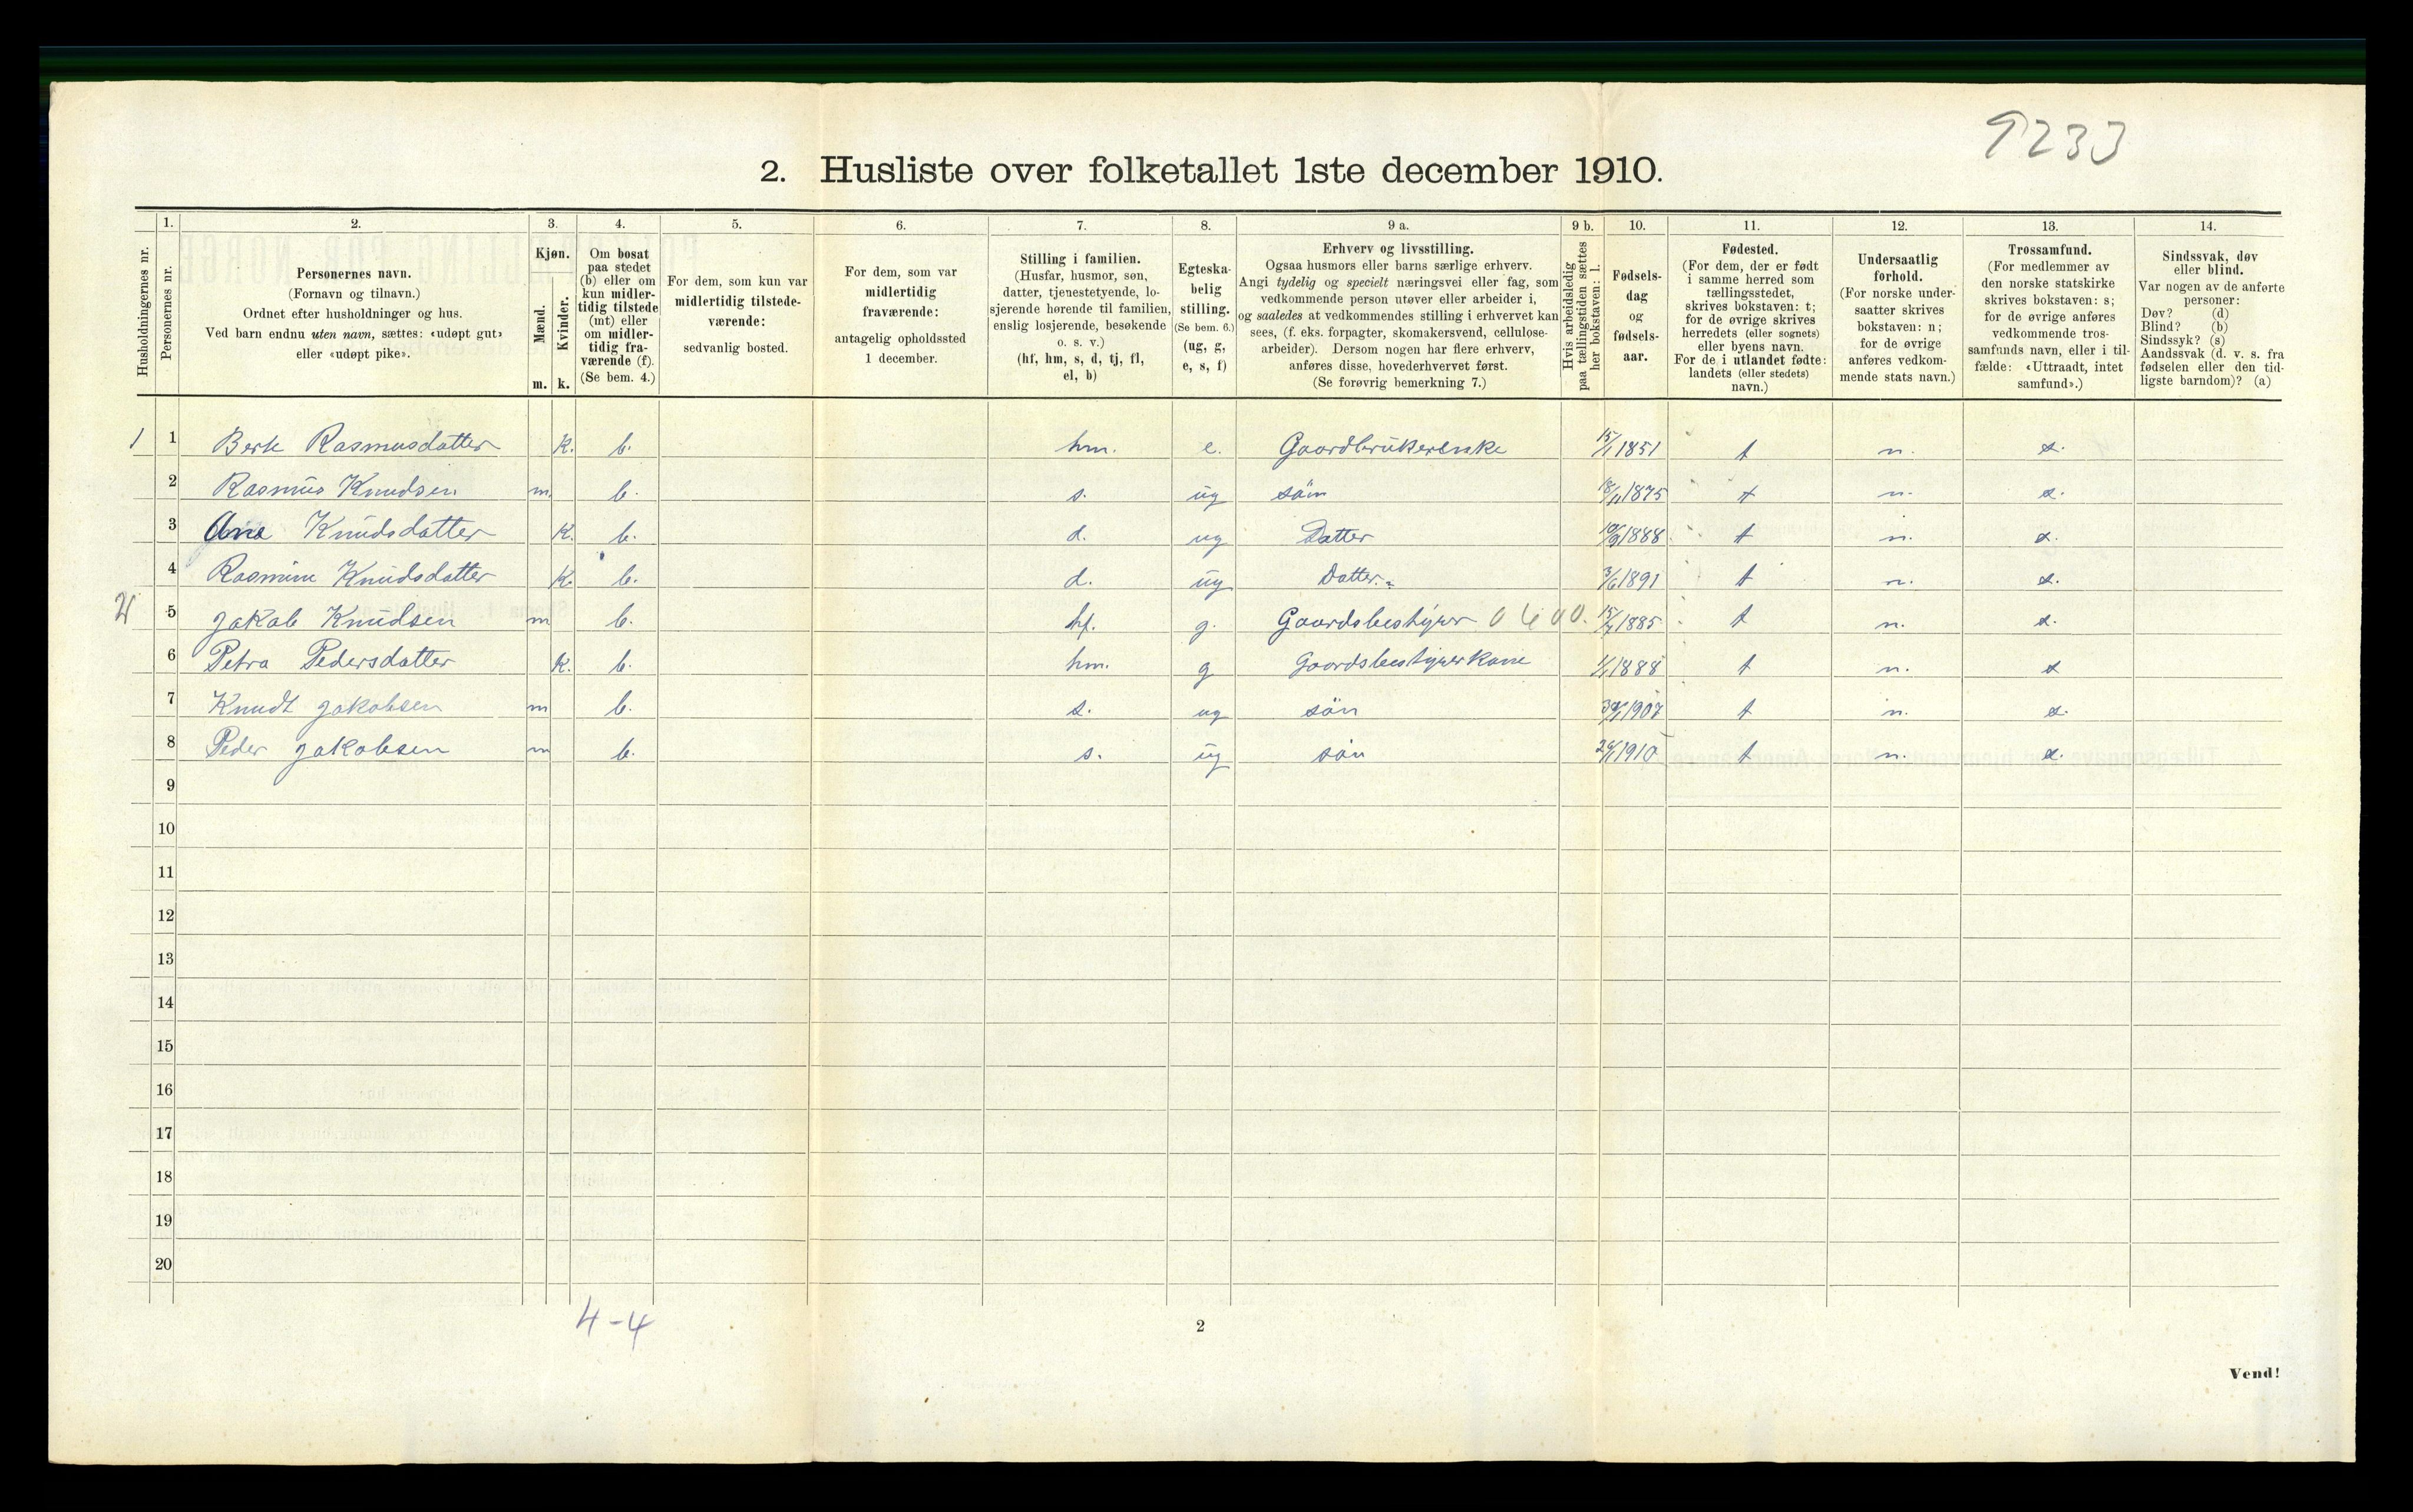 9233
2. Husliste over folketallet 1ste december 1910.
Husholdningernes nr.
1. Personernes nr.
2. Personernes navn.
(Fornavn og tilnavn.)
Ordnet efter husholdninger og hus.
Ved barn endnu uten navn, sættes: «udøpt gut»
eller «udøpt pike».
3. Kjøn.
Mænd. m.
Kvinder. k.
4. Om bosat
paa stedet
(b) eller om
kun midler-
tidig tilstede
(mt) eller
om midler-
tidig fra-
værende (f).
(Se bem. 4.)
5. For dem, som kun var
midlertidig tilstede-
værende:
sedvanlig bosted.
6. For dem, som var
midlertidig
fraværende:
antagelig opholdssted
1 december.
7. Stilling i familien.
(Husfar, husmor, søn,
datter, tjenestetyende, lo-
sjerende hørende til familien,
enslig losjerende, besøkende
o. s. v.)
(hf, hm, s, d, tj, fl,
el, b)
8. Egteska-
belig
stilling.
(Se bem. 6.)
(ug, g,
e, s, f)
9 a. Erhverv og livsstilling.
Ogsaa husmors eller barns særlige erhverv.
Angi tydelig og specielt næringsvei eller fag, som
vedkommende person utøver eller arbeider i,
og saaledes at vedkommendes stilling i erhvervet kan
sees, (f. eks. forpagter, skomakersvend, cellulose-
arbeider). Dersom nogen har flere erhverv,
anføres disse, hovederhvervet først.
(Se forøvrig bemerkning 7.)
9 b. Hvis arbeidsledig
paa tællingstiden sættes
her bokstaven: l.
10. Fødsels-
dag
og
fødsels-
aar.
11. Fødested.
(For dem, der er født
i samme herred som
tællingsstedet,
skrives bokstaven: t;
for de øvrige skrives
herredets (eller sognets)
eller byens navn.
For de i utlandet fødte:
landets (eller stedets)
navn.)
12. Undersaatlig
forhold.
(For norske under-
saatter skrives
bokstaven: n;
for de øvrige
anføres vedkom-
mende stats navn.)
13. Trossamfund.
(For medlemmer av
den norske statskirke
skrives bokstaven: s;
for de øvrige anføres
vedkommende tros-
samfunds navn, eller i til-
fælde: «Uttraadt, intet
samfund».)
14. Sindssvak, døv
eller blind.
Var nogen av de anførte
personer:
Døv? (d)
Blind? (b)
Sindssyk? (s)
Aandssvak (d. v. s. fra
fødselen eller den tid-
ligste barndom)? (a)
1 1 Berte Rasmusdatter k. b. hm. e. Gaardbrukerenke 15/1 1851 t n. s.
2 Rasmus Knudsen m. b. s. ug søn 18/11 1875 t n. s.
3 Ane Knudsdatter k. b. d. ug Datter 10/9 1888 t n. s.
4 Rasmine Knudsdatter k. b. d. ug Datter 3/6 1891 t n. s.
2 5 Jakob Knudsen m b. hf. g. Gaardsbestyrer 0400. 15/7 1885 t n. s.
6 Petra Pedersdatter k. b. hm. g Gaardsbestyrerkone 1/1 1888 t n. s
7 Knudt Jakobsen m b. s. ug søn 1907 t n. s.
8 Peder Jakobsen m b. s. ug søn 1910 t n. s.
9
10
11
12
13
14
15
16
17
18
19
20
4-4
2
Vend!